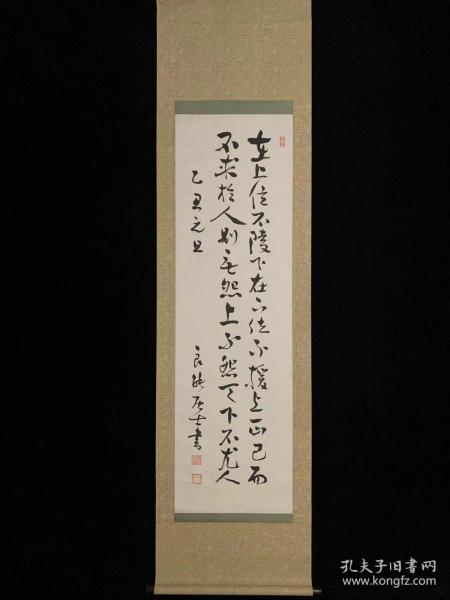 在上位不陵下在下位不援上正己而
不求於人則無怨上不怨天下不尤人
乙丑元旦
良能居士書
孔夫子旧书网
www.kongfz.com